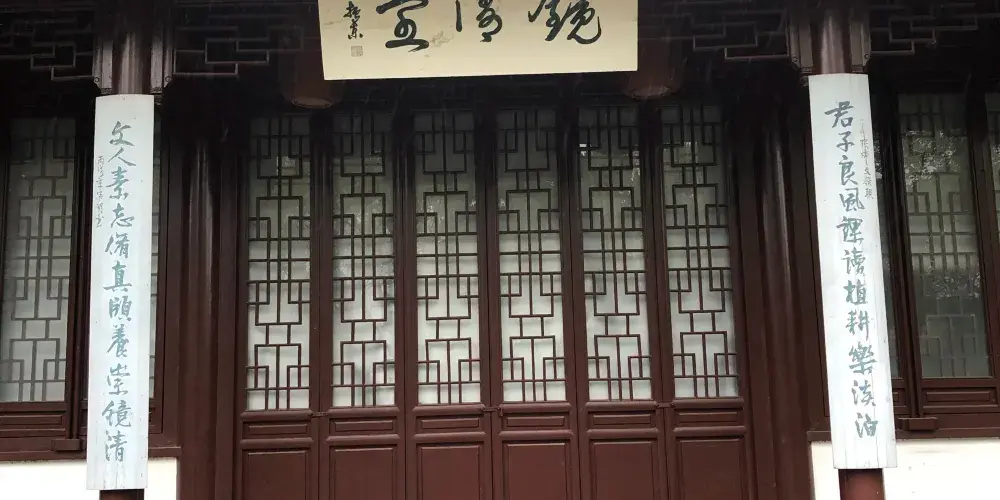 鏡清室
君子良風課讀植耕樂淡泊
文人素志脩真頤養崇鏡清